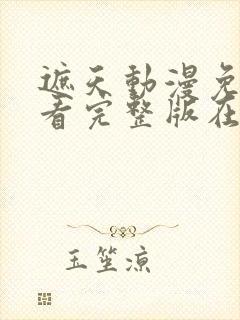 遮天動漫免
看完整版在
玉笙凉